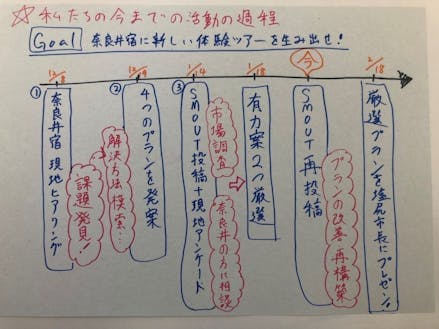 ☆私たちの今までの活動の過程
Goal 奈良井宿に新しい体験ツアーを生み出せ!
12/8
12/19
1/14
今
2/18
① 奈良井宿 現地ヒアリング
課題発見!
解決方法模索…
② 4つのプランを発案
③ SMOUT投稿+現地アンケート
市場調査
奈良井の方に相談
有力案2つ厳選
SMOUT再投稿
プランの改善 再構築
厳選プランを塩尻市長にプレゼン。